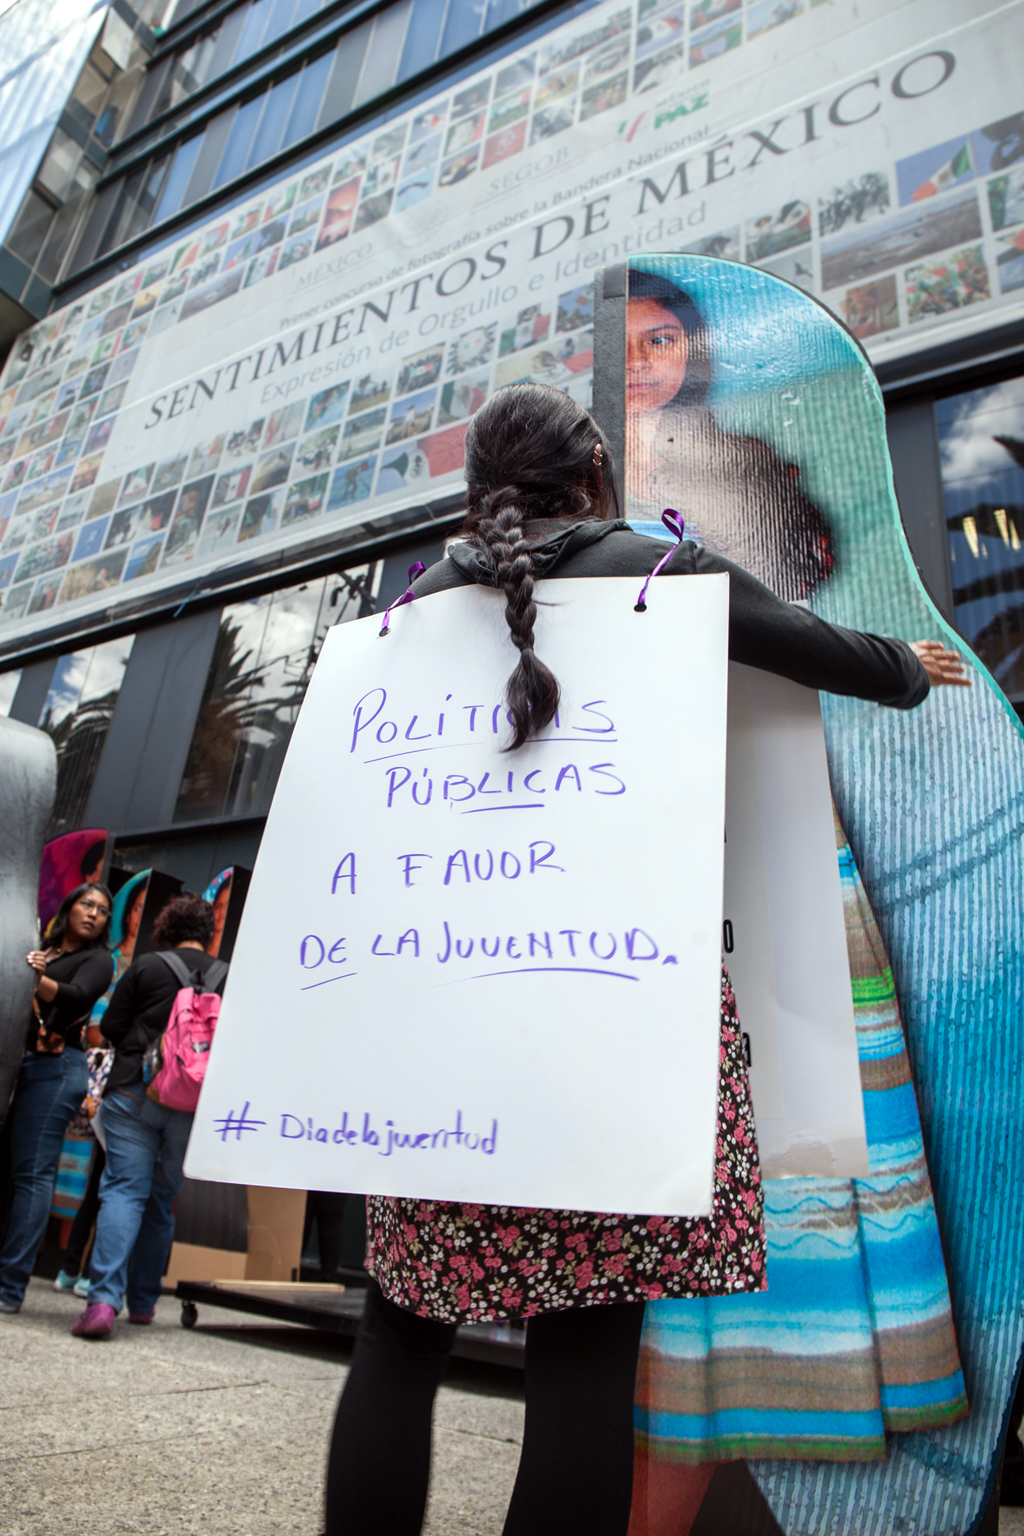 MÉXICO
PAZ
SEGOB
MÉXICO
Primer concurso de fotografía sobre la Bandera Nacional
SENTIMIENTOS DE MÉXICO
Expresión de Orgullo e Identidad
POLÍTICAS
PÚBLICAS
A FAVOR
DE LA JUVENTUD.
# Diadelajuventud